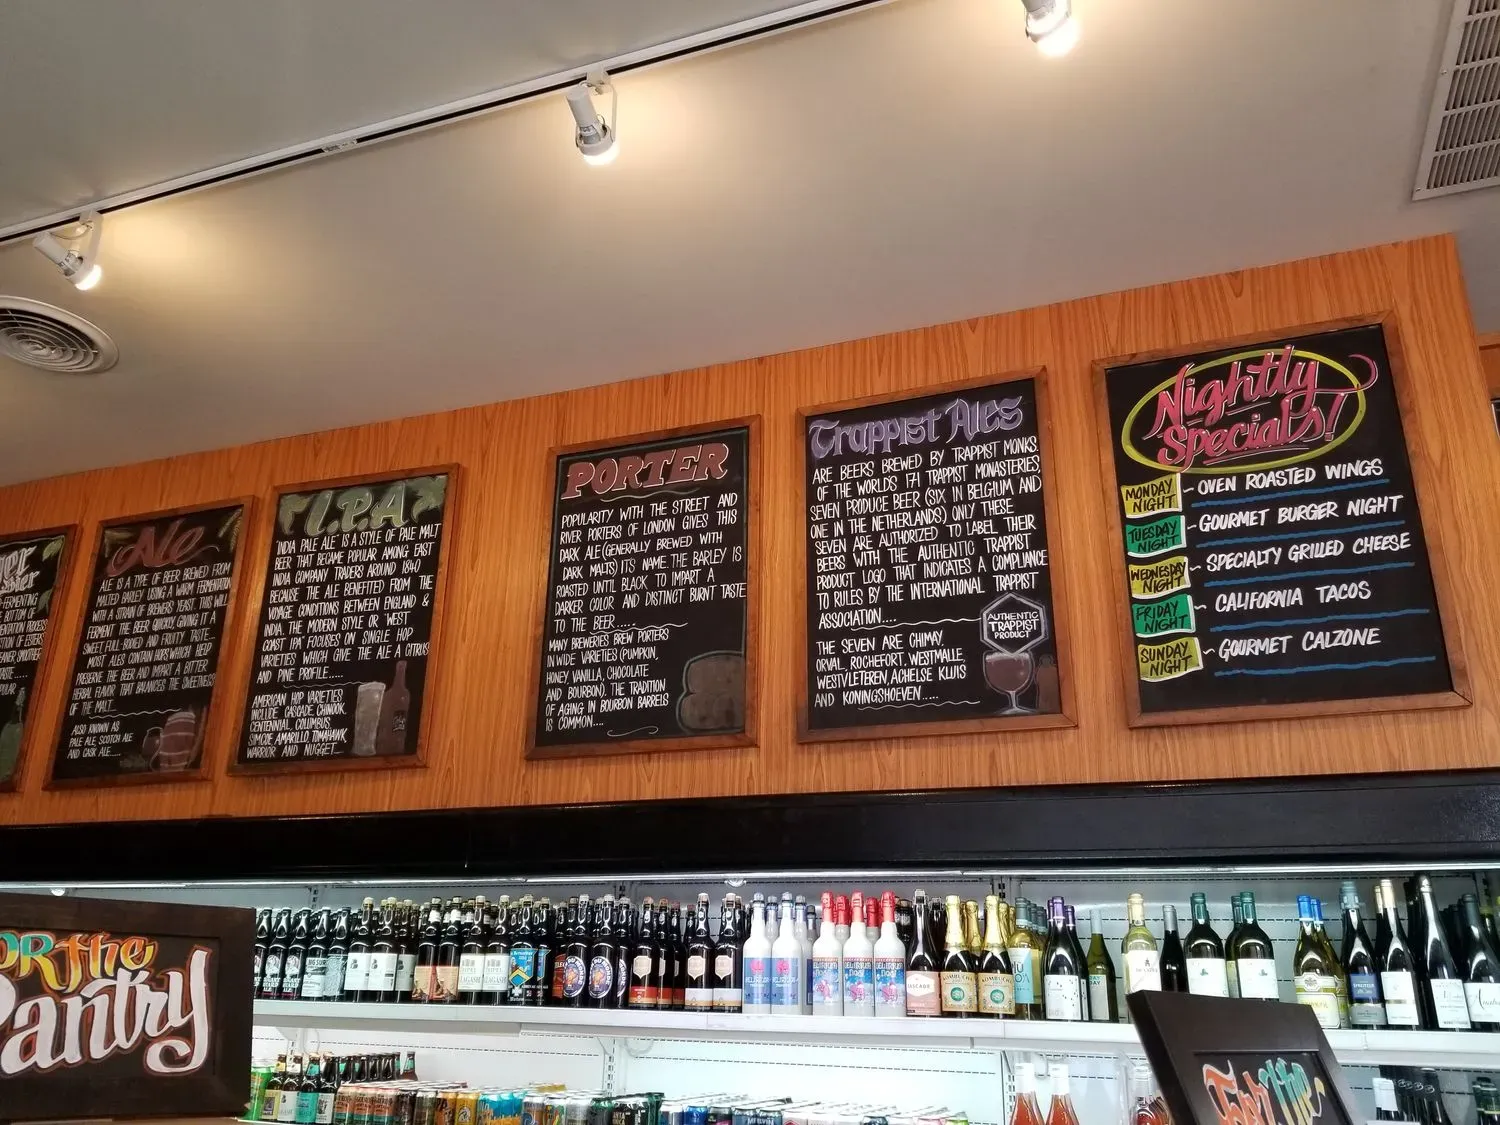 Ale
ALE IS A TYPE OF BEER BREWED FROM
MALTED BARLEY USING A WARM FERMENTATION
WITH A STRAIN OF BREWERS YEAST. THIS WILL
FERMENT THE BEER QUICKLY, GIVING IT A
SWEET, FULL-BODIED AND FRUITY TASTE...
MOST ALES CONTAIN HOPS WHICH HELP
PRESERVE THE BEER AND IMPART A BITTER
HERBAL FLAVOR THAT BALANCES THE SWEETNESS
OF THE MALT...
ALSO KNOWN AS
PALE ALE, SCOTCH ALE
AND CASK ALE.....
I.P.A
"INDIA PALE ALE" IS A STYLE OF PALE MALT
BEER THAT BECAME POPULAR AMONG EAST
INDIA COMPANY TRADERS AROUND 1840
BECAUSE THE ALE BENEFITED FROM THE
VOYAGE CONDITIONS BETWEEN ENGLAND &
INDIA. THE MODERN STYLE OR "WEST
COAST IPA" FOCUSES ON SINGLE HOP
VARIETIES WHICH GIVE THE ALE A CITRUS
AND PINE PROFILE.....
AMERICAN HOP VARIETIES
INCLUDE CASCADE, CHINOOK,
CENTENNIAL, COLUMBUS,
SIMCOE, AMARILLO, TOMAHAWK,
WARRIOR AND NUGGET...
PORTER
POPULARITY WITH THE STREET AND
RIVER PORTERS OF LONDON GIVES THIS
DARK ALE (GENERALLY BREWED WITH
DARK MALTS) ITS NAME. THE BARLEY IS
ROASTED UNTIL BLACK TO IMPART A
DARKER COLOR AND DISTINCT BURNT TASTE
TO THE BEER.....
MANY BREWERIES BREW PORTERS
IN WIDE VARIETIES (PUMPKIN,
HONEY, VANILLA, CHOCOLATE
AND BOURBON). THE TRADITION
OF AGING IN BOURBON BARRELS
IS COMMON....
Trappist Ales
ARE BEERS BREWED BY TRAPPIST MONKS.
OF THE WORLDS 171 TRAPPIST MONASTERIES,
SEVEN PRODUCE BEER (SIX IN BELGIUM, AND
ONE IN THE NETHERLANDS) ONLY THESE
SEVEN ARE AUTHORIZED TO LABEL THEIR
BEERS WITH THE AUTHENTIC TRAPPIST
PRODUCT LOGO THAT INDICATES A COMPLIANCE
TO RULES BY THE INTERNATIONAL TRAPPIST
ASSOCIATION....
THE SEVEN ARE CHIMAY,
ORVAL, ROCHEFORT, WESTMALLE,
WESTVLETEREN, ACHELSE KLUIS
AND KONINGSHOEVEN.....
AUTHENTIC
TRAPPIST
PRODUCT
Nightly
Specials!
MONDAY NIGHT - OVEN ROASTED WINGS
TUESDAY NIGHT - GOURMET BURGER NIGHT
WEDNESDAY NIGHT - SPECIALTY GRILLED CHEESE
FRIDAY NIGHT - CALIFORNIA TACOS
SUNDAY NIGHT - GOURMET CALZONE
FOR the
Pantry
For the